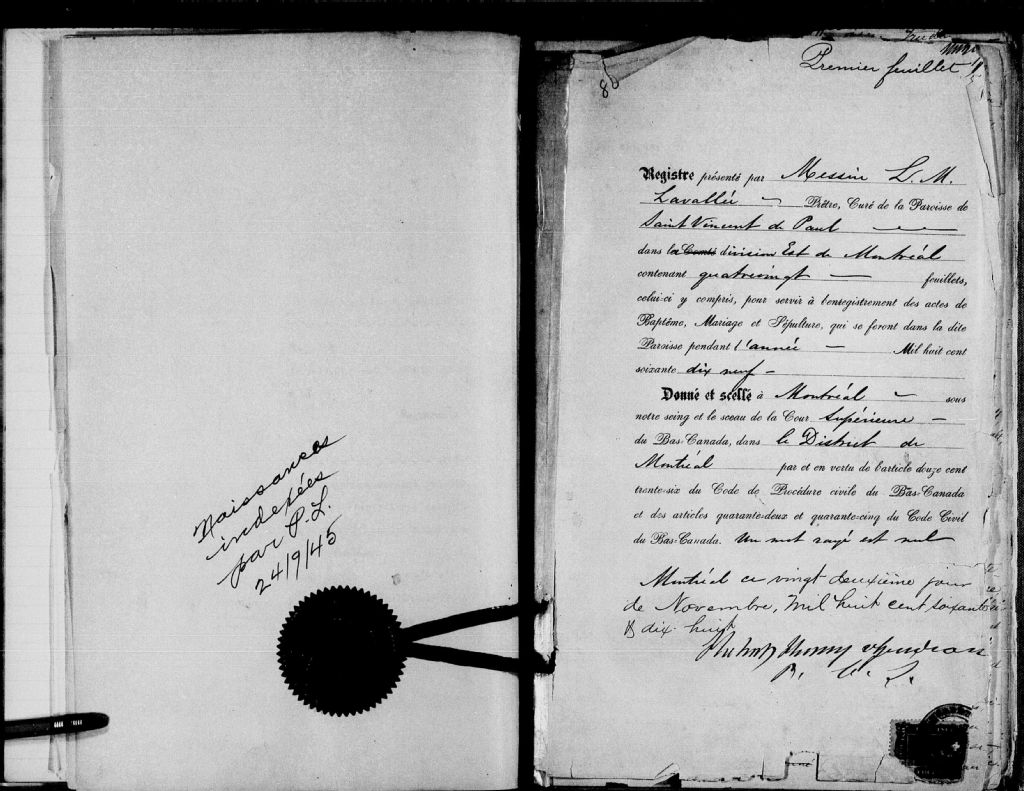 Naissances
indexées
par P.L.
24/9/45
Premier feuillet
8
Registre présenté par Messire L. M.
Lavallée — Prêtre, Curé de la Paroisse de
Saint Vincent de Paul —
dans le Comté division Est de Montréal
contenant quatrevingt — feuillets,
celui-ci y compris, pour servir à l'enregistrement des actes de
Baptême, Mariage et Sépulture, qui se feront dans la dite
Paroisse pendant l'année — Mil huit cent
soixante dix neuf —
Donné et scellé à Montréal — sous
notre seing et le sceau de la Cour Supérieure —
du Bas-Canada, dans le District de
Montréal par et en vertu de l'article douze cent
trente-six du Code de Procédure civile du Bas-Canada
et des articles quarante-deux et quarante-cinq du Code Civil
du Bas-Canada. Un mot rayé est nul
Montréal ce vingt deuxième jour
de Novembre, Mil huit cent soixante
& dix huit